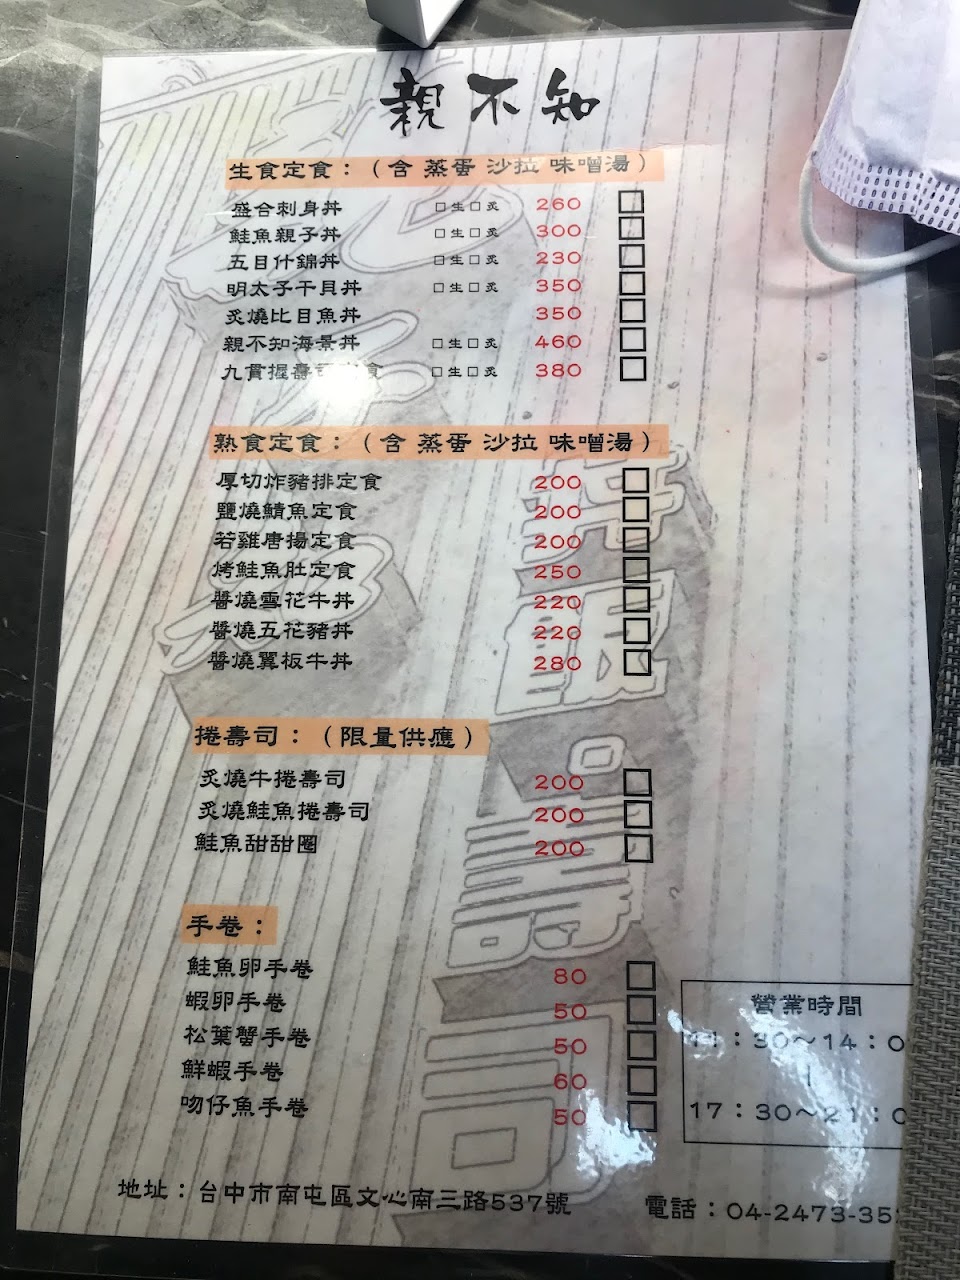 親不知
生食定食：（含 蒸蛋 沙拉 味噌湯）
盛合刺身丼 □生□炙 260
鮭魚親子丼 □生□炙 300
五目什錦丼 □生□炙 230
明太子干貝丼 □生□炙 350
炙燒比目魚丼 350
親不知海景丼 □生□炙 460
九貫握壽司定食 □生□炙 380
熟食定食：（含 蒸蛋 沙拉 味噌湯）
厚切炸豬排定食 200
鹽燒鯖魚定食 200
若雞唐揚定食 200
烤鮭魚肚定食 250
醬燒雪花牛丼 220
醬燒五花豬丼 220
醬燒翼板牛丼 280
捲壽司：（限量供應）
炙燒牛捲壽司 200
炙燒鮭魚捲壽司 200
鮭魚甜甜圈 200
手卷：
鮭魚卵手卷 80
蝦卵手卷 50
松葉蟹手卷 50
鮮蝦手卷 60
吻仔魚手卷 50
營業時間
11：30～14：0
17：30～21：0
地址：台中市南屯區文心南三路537號
電話：04-2473-35